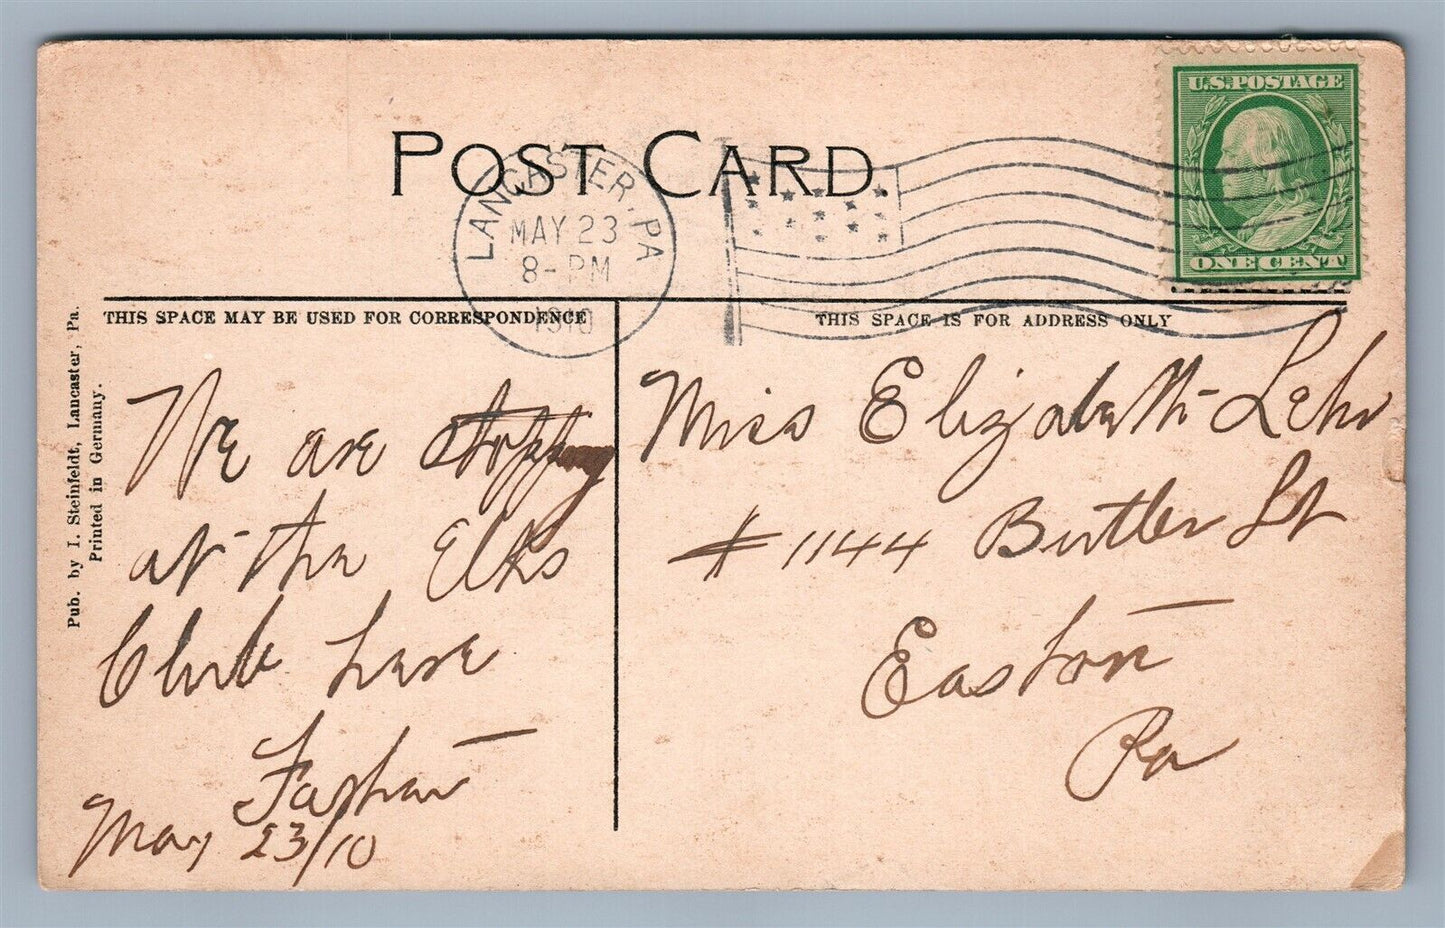 POST CARD.
U.S. POSTAGE
ONE CENT
LANCASTER, PA
MAY 23
8-PM
1910
THIS SPACE MAY BE USED FOR CORRESPONDENCE
THIS SPACE IS FOR ADDRESS ONLY
Pub. by I. Steinfeldt, Lancaster, Pa.
Printed in Germany.
We are stopping
at the Elks
Club here
Father
May 23/10
Miss Elizabeth Lehr
# 1144 Butler St
Easton
Pa